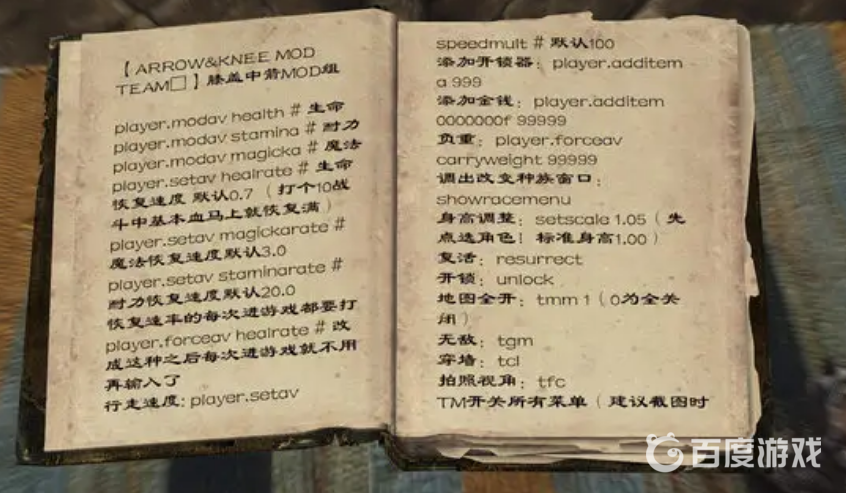 【ARROW&KNEE MOD
TEAM□】膝盖中箭MOD组
player.modav health # 生命
player.modav stamina # 耐力
player.modav magicka # 魔法
player.setav healrate # 生命
恢复速度 默认0.7 （打个10战
斗中基本血马上就恢复满）
player.setav magickarate #
魔法恢复速度默认3.0
player.setav staminarate #
耐力恢复速度默认20.0
恢复速率的每次进游戏都要打
player.forceav healrate # 改
成这种之后每次进游戏就不用
再输入了
行走速度: player.setav
speedmult # 默认100
添加开锁器：player.additem
a 999
添加金钱：player.additem
0000000f 99999
负重：player.forceav
carryweight 99999
调出改变种族窗口：
showracemenu
身高调整：setscale 1.05（先
点选角色！标准身高1.00）
复活：resurrect
开锁：unlock
地图全开：tmm 1（0为全关
闭）
无敌：tgm
穿墙：tcl
拍照视角：tfc
TM开关所有菜单（建议截图时
百度游戏